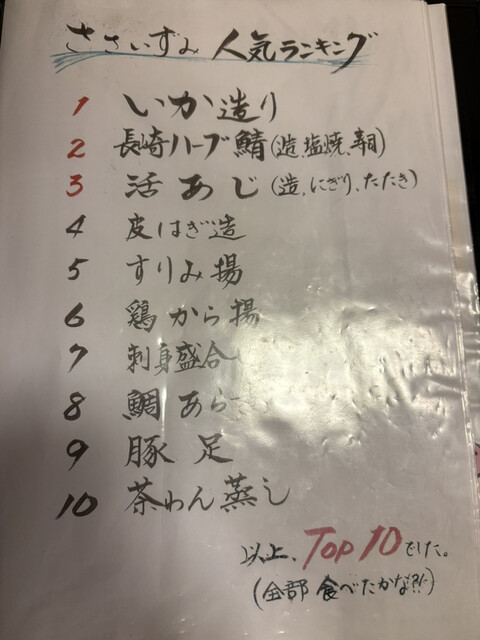 ささいずみ 人気ランキング
1 いか造り
2 長崎ハーブ鯖(造、塩焼、寿司)
3 活あじ(造、にぎり、たたき)
4 皮はぎ造
5 すりみ揚
6 鶏から揚
7 刺身盛合
8 鯛あら
9 豚足
10 茶わん蒸し
以上、Top 10でした。
(全部食べたかな?!)